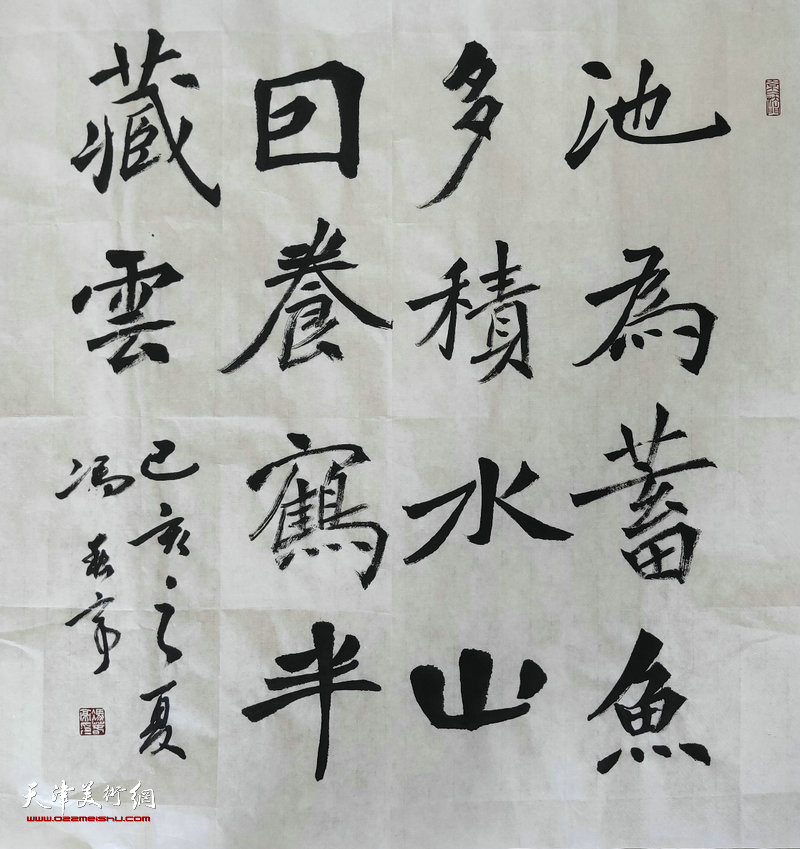 池為蓄魚
多積水山
囙養鶴半
藏雲
己亥之夏
馮
天津美術網
www.022meishu.com